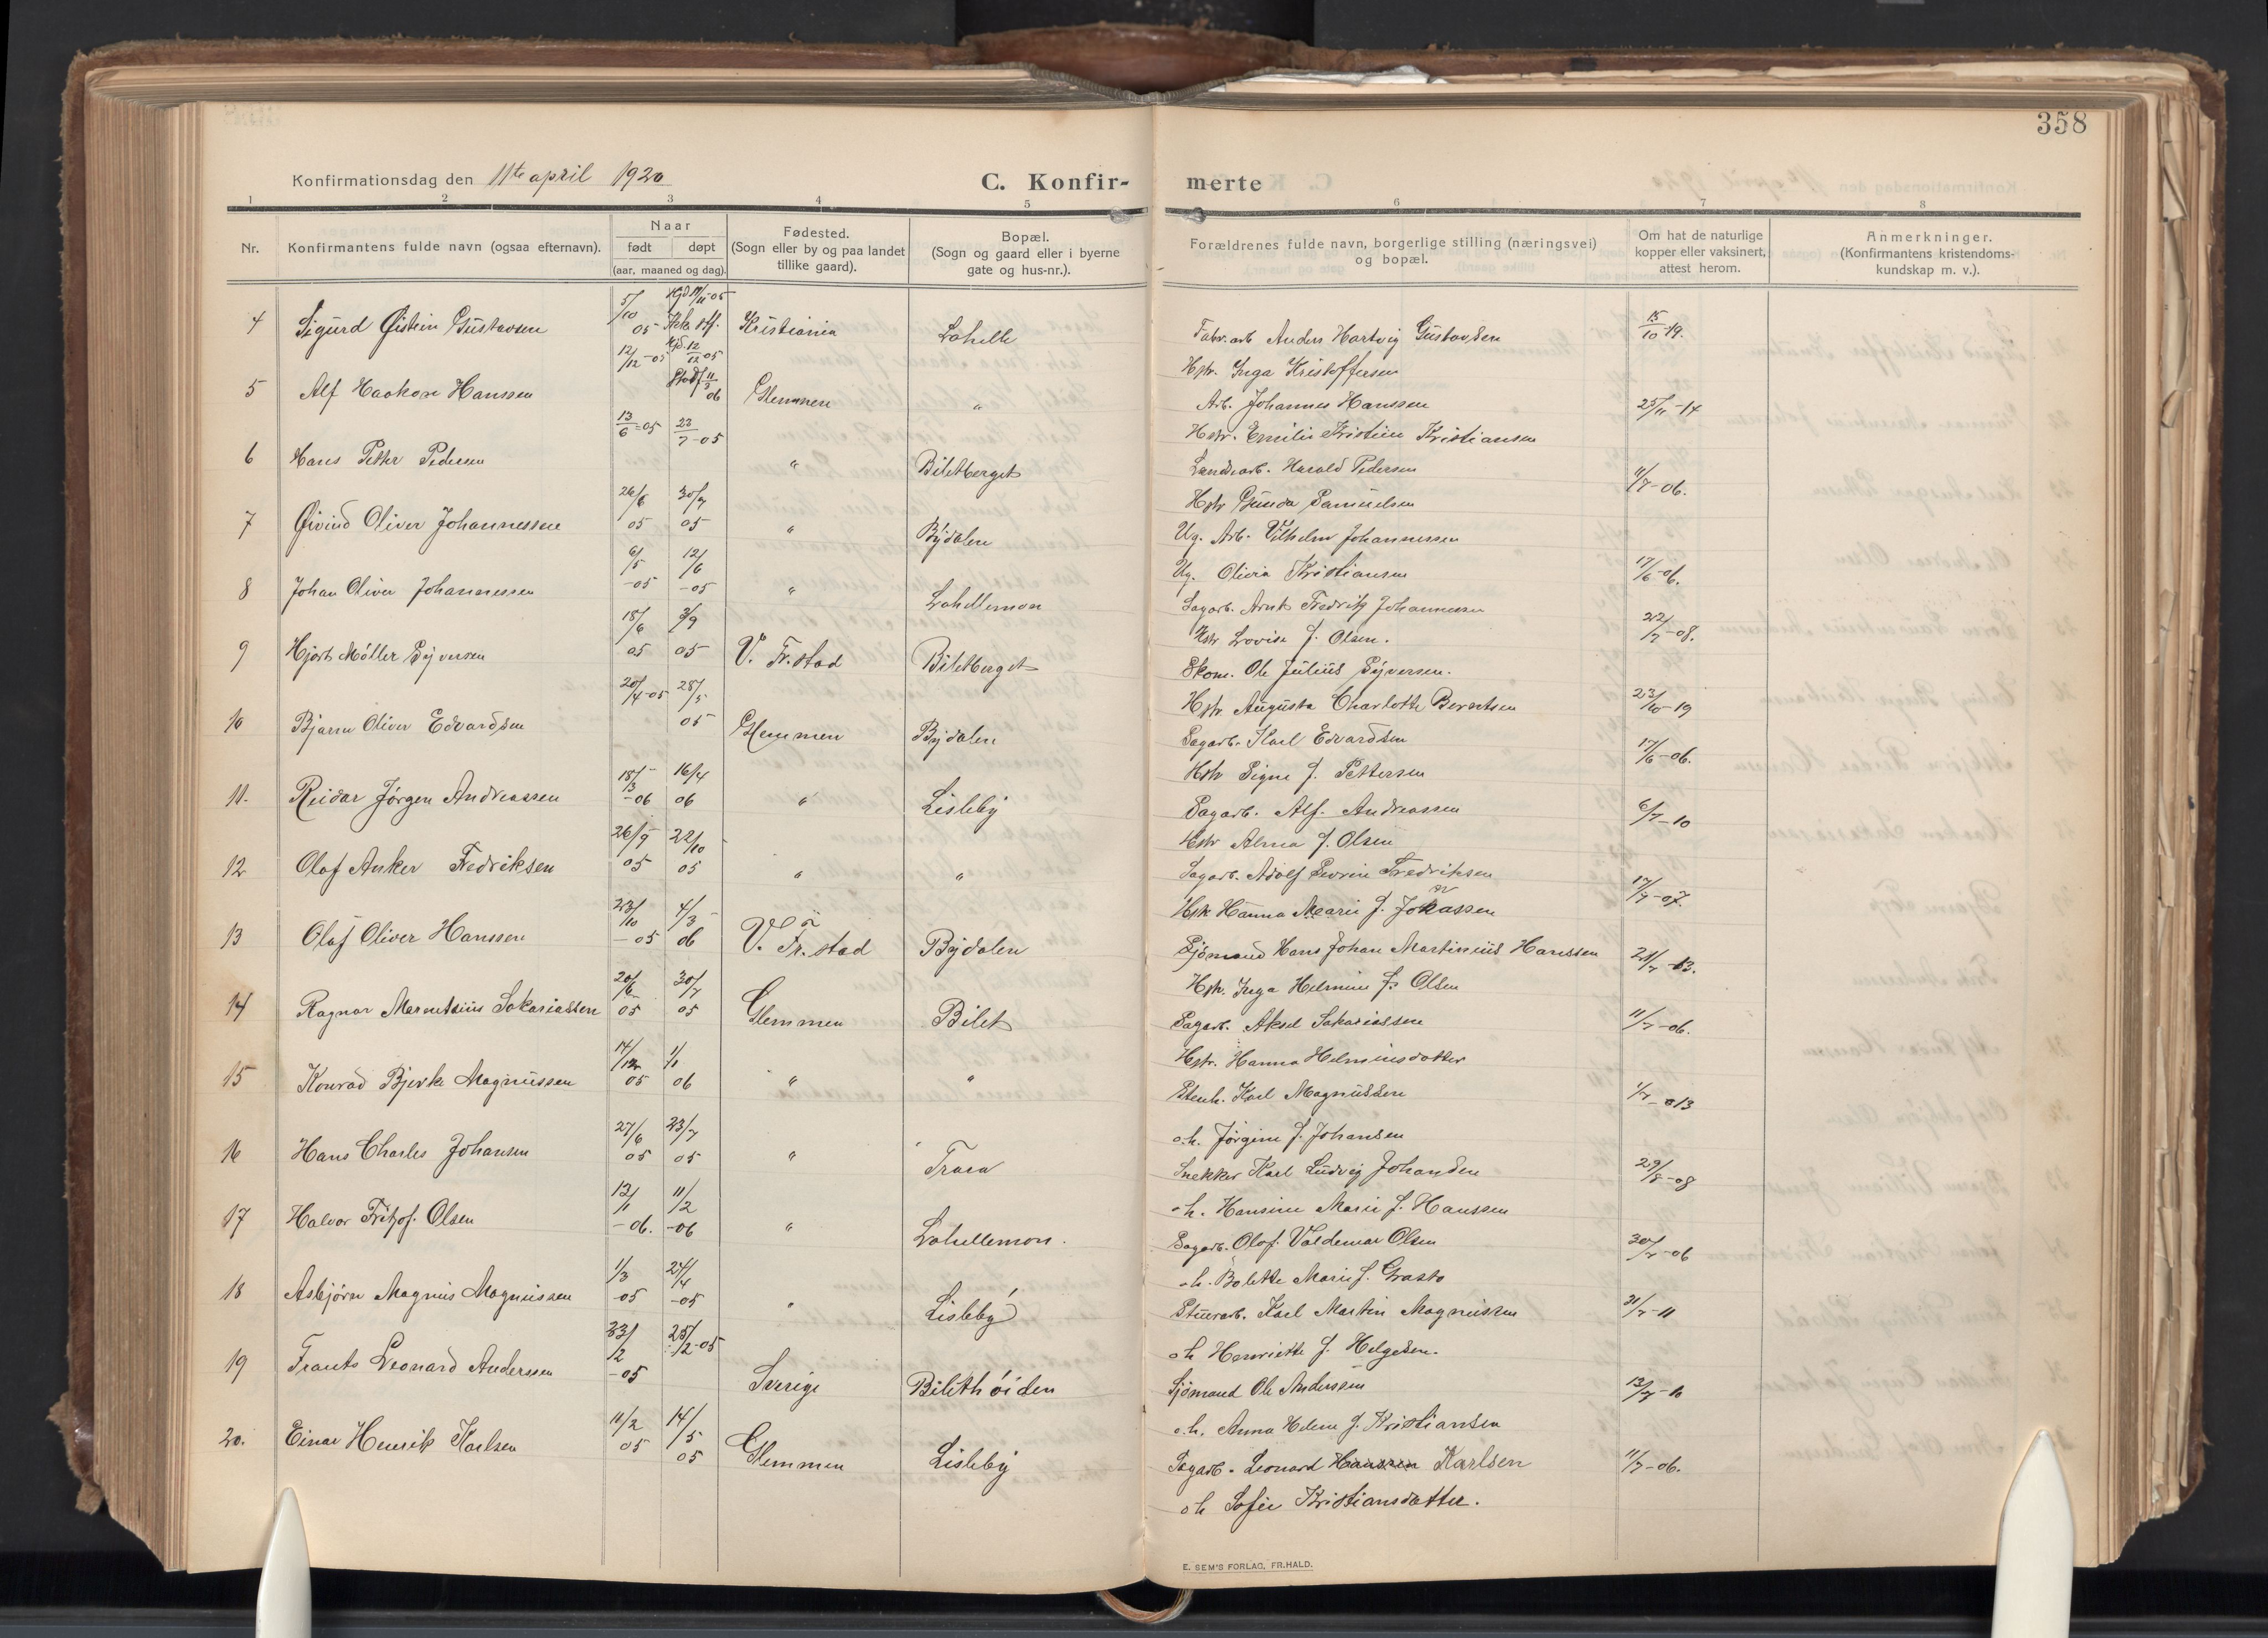 358
Konfirmationsdag den 11te april 1920
C. Konfir-
merte
1 2 3 4 5 6 7 8
Nr.
Konfirmantens fulde navn (ogsaa efternavn).
Naar
født døpt
(aar, maaned og dag).
Fødested.
(Sogn eller by og paa landet
tillike gaard).
Bopæl.
(Sogn og gaard eller i byerne
gate og hus-nr.).
Forældrenes fulde navn, borgerlige stilling (næringsvei)
og bopæl.
Om hat de naturlige
kopper eller vaksinert,
attest herom.
Anmerkninger.
(Konfirmantens kristendoms-
kundskap m. v.).
4 Sigurd Øistein Gustavsen 5/10 05 Hjd 11/11-05 Kristiania Lahelle
Fabr. arb Anders Hartvig Gustavsen 15/10-19.
Hstr. Inga Kristoffersen
5 Alf Haakon Hanssen 12/12-05 Hjd. 12/12 05 Stadf 11/3 06 Glemmen "
Arb. Johannes Hanssen 25/11-14
Hstr. Emilie Kristine Kristiansen
6 Hans Petter Pedersen 13/6-05 23/7-05 " Biletberget
Landearb. Harald Pedersen 11/7-06.
Hstr Gunda Samuelsen
7 Øivind Oliver Johannessen 26/6 05 30/7 05 " Bydalen
Ug. Arb. Vilhelm Johannessen
Ug. Olivia Kristiansen 17/6-06.
8 Johan Oliver Johannessen 6/5-05 12/6-05 " Lahellemon
Sagarb. Arnt Fredrik Johannessen
Hstr Lovise f. Olsen. 22/7-08.
9 Hjort Møller Syversen 18/6 05 3/9 05 V. Fr.stad Biletberget
Skom. Ole Julius Syversen.
Hstr. Augusta Charlotte Berntsen 23/10-19
10 Bjarne Oliver Edvardsen 20/4-05 28/5 05 Glemmen Bydalen
Sagarb. Karl Edvardsen 17/6-06.
Hstr Signe f. Pettersen
11. Reidar Jørgen Andreassen 18/3-06 16/4 06 " Lisleby
Sagarb. Alf. Andreassen 6/7-10
Hstr Alma f. Olsen
12 Olaf Anker Fredriksen 26/9 05 22/10 05 " "
Sagarb. Adolf Severin Fredriksen
Hstr Hanna Marie f. Jonassen 17/7-07.
13 Olaf Oliver Hanssen 23/10-05 4/3 06 V. Fr.stad Bydalen
Sjømand Hans Johan Martinius Hanssen 21/7-13.
Hstr. Inga Helmine f. Olsen
14 Ragnar Marentsius Sakariassen 20/6 05 30/7 05 Glemmen Bilet
Sagarb. Aksel Sakariassen 11/7-06.
Hstr. Hanna Helminsdotter
15 Konrad Bjerke Magnussen 14/12 05 1/1 06 " "
Stenh. Karl Magnussen 1/7-013
o.h. Jørgine f. Johansen
16 Hans Charles Johansen 27/6 05 23/7 05 " Trara
Snekker Karl Ludvig Johansen 29/8-08
o.h. Hansine Marie f. Hanssen
17 Halvor Fritjof. Olsen 12/1-06. 11/2-06 " Lahellemon.
Sagarb. Olaf Valdemar Olsen 30/7-06
o.h. Bolette Marie f. Grasto
18 Asbjørn Magnus Magnussen 1/3-05 24/4-05 " Lisleby
Stuerarb. Karl Martin Magnussen 31/7-11
o h Henriette f. Helgesen.
19 Frants Leonard Anderssen 23/2-05 25/12-05 Sverige Bilethöiden
Sjömand Ole Anderssen 13/7-10
o.h. Anna Helene f. Kristiansen
20. Einar Henrik Karlsen 11/2 05 14/5 05 Glemmen Lisleby
Sagarb. Leonard Hanssen Karlsen 11/7-06.
o h Sofie Kristiansdatter.
E. SEM'S FORLAG, FR.HALD.